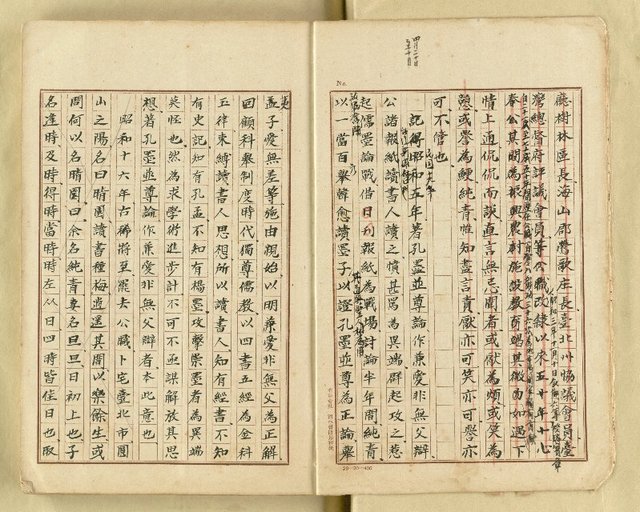 應樹林區長海山郡鶯歌庄長臺北州協議會員臺
灣總督府評議會員等公職改隸以來五十年中心
奉公其間為振興農村施設教育竭其微力如遇下
情上通侃侃而談直言無忌聞者或厭為煩或美為
戇或譽為鯁純青惟知盡言責厭亦可笑亦可譽亦
可不管也
記得昭和五年著孔墨並尊論作兼愛非無父辯
公諸報紙讀書人讀之憤甚罵為異端群起攻之惹
起儒墨論戰借日刊報紙為戰場討論半年間純青
以一當百舉韓愈讀墨子以證孔墨並尊為正論舉
孟子愛無差等施由親始以明兼愛非無父為正解
回顧科舉制度時代獨尊儒教以四書五經為金科
玉律束縛讀書人思想所以讀書人知有經書不知
有史記知有孔孟不知有楊墨攻擊崇墨者為異端
莫怪也然為求學術進步計不可不亟謀解放其思
想著孔墨並尊論作兼愛非無父辯者本此意也
昭和十六年古稀將至罷去公職卜宅臺北市圓
山之陽名曰晴園讀書種梅逍遙其間以樂餘生或
問何以名晴園曰余名純青妻名旦旦日初上也子
名逢時及時得時當時時左从日四時皆佳日也取
四月二十日
No.
民國十九年
20-20-400